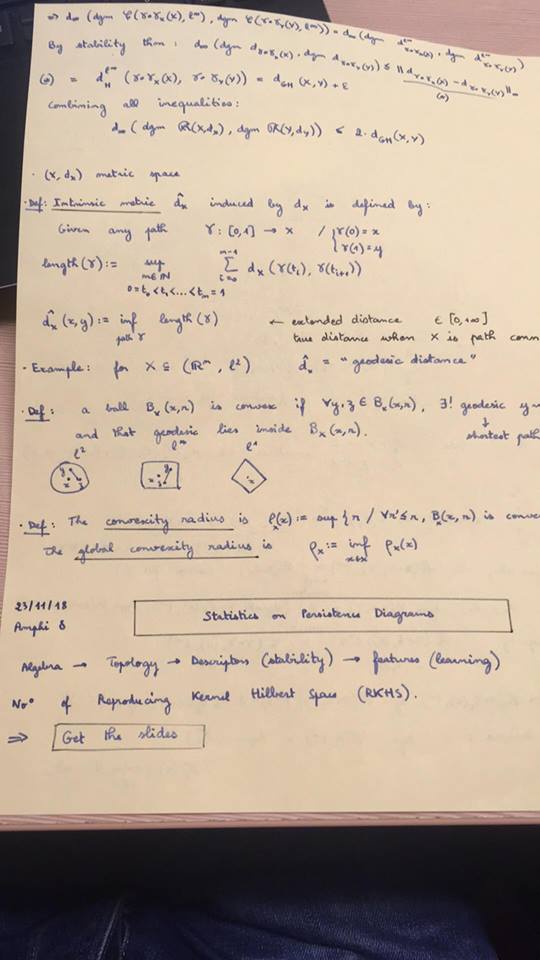 ⇒ d∞ (dgm C(γ∘γx(X), ℓ∞), dgm C(γ∘γY(Y), ℓ∞)) = d∞ (dgm d^ℓ∞_γ∘γx(X), dgm d^ℓ∞_γ∘γY(Y))
By stability thm : d∞ (dgm d_γ∘γx(X), dgm d_γ∘γY(Y)) ≤ || d_γ∘γx(X) - d_γ∘γY(Y) ||∞
(*)
(*) = d_H^ℓ∞ (γ∘γx(X), γ∘γY(Y)) = d_GH (X,Y) + ε
Combining all inequalities:
d∞ ( dgm R(X,dx), dgm R(Y,dy)) ≤ 2. d_GH(X,Y)
· (X, dx) metric space
· Def: Intrinsic metric d̂x induced by dx is defined by:
Given any path γ: [0,1] → X / { γ(0) = x
γ(1) = y
length(γ) := sup Σ dx (γ(ti), γ(ti+1))
m∈ℕ i=0 m-1
0=t0<t1<...<tm=1
d̂x (x,y) := inf length(γ) ← extended distance ∈ [0,+∞]
path γ true distance when X is path
· Example: for X ⊆ (ℝ^n, ℓ²) d̂x = "geodesic distance"
· Def: a ball Bx(x,r) is convex if ∀y,z ∈ Bx(x,r), ∃! geodesic
and that geodesic lies inside Bx(x,r). ↓ shortest path
ℓ² ℓ∞ ℓ¹
y x z y x z x
· Def: The convexity radius is ρx(x) := sup { r / ∀r'≤r, Bx(x,r) is
The global convexity radius is ρx := inf ρx(x)
x∈X
23/11/18
Amphi 8
Statistics on Persistence Diagrams
Algebra → Topology → Descriptors (stability) → features (learning)
No° of Reproducing Kernel Hilbert Space (RKHS).
⇒ Get the slides